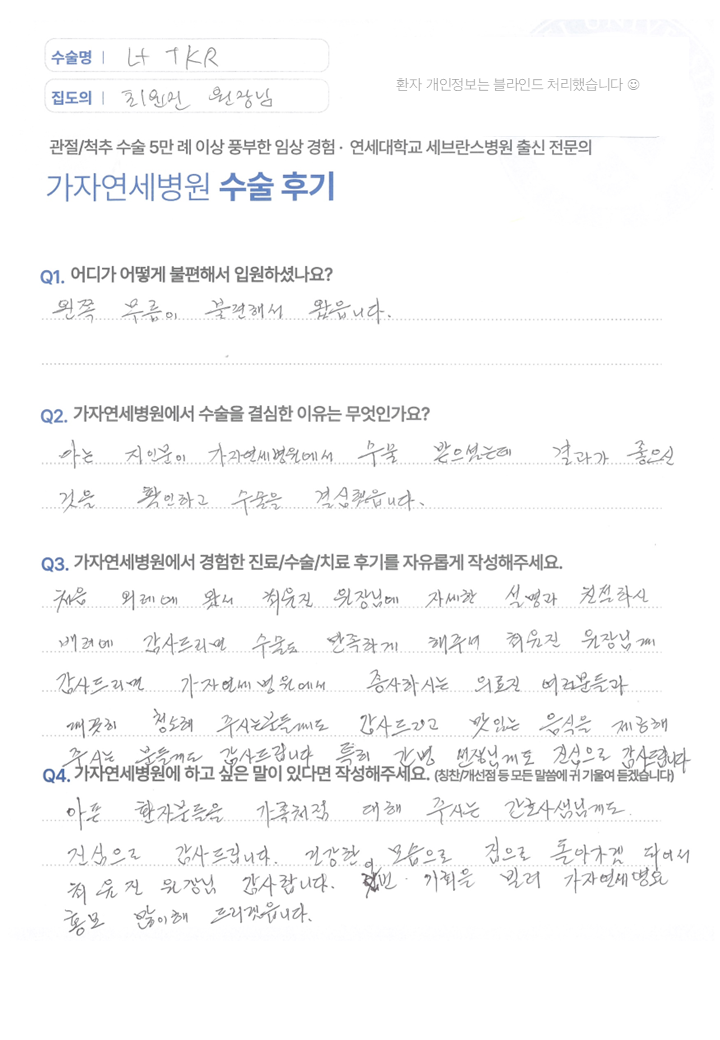 수술명 | Lt TKR
환자 개인정보는 블라인드 처리했습니다 ☺
집도의 | 최윤진 원장님
관절/척추 수술 5만 례 이상 풍부한 임상 경험 · 연세대학교 세브란스병원 출신 전문의
가자연세병원 수술 후기
Q1. 어디가 어떻게 불편해서 입원하셨나요?
왼쪽 무릎이 불편해서 왔읍니다.
Q2. 가자연세병원에서 수술을 결심한 이유는 무엇인가요?
아는 지인분이 가자연세병원에서 수술 받으셨는데 결과가 좋으신
것을 확인하고 수술을 결심했읍니다.
Q3. 가자연세병원에서 경험한 진료/수술/치료 후기를 자유롭게 작성해주세요.
처음 외레에 왔서 최윤진 원장님에 자세한 설명과 친절하신
배려에 감사드리면 수술도 만족하게 해주녀 최윤진 원장님께
감사드리면 가자연세병원에서 종사하시는 의료진 여러분들과
깨끗히 청소해 주시는분들께도 감사드리고 맛있는 음식을 제공해
주시는 분들께도 감사드립니다 특히 간병 선생님께도 진심으로 감사드립니다
Q4. 가자연세병원에 하고 싶은 말이 있다면 작성해주세요. (칭찬/개선점 등 모든 말씀에 귀 기울여 듣겠습니다)
아픈 환자분들을 가족처럼 대해 주시는 간호사샘님께도
진심으로 감사드립니다. 건강한 모습으로 집으로 돌아가겠 되어서
최윤진 원장님 감사합니다. 이번 기회을 빌려 가자연세병원
홍보 많이해 드리겠읍니다.